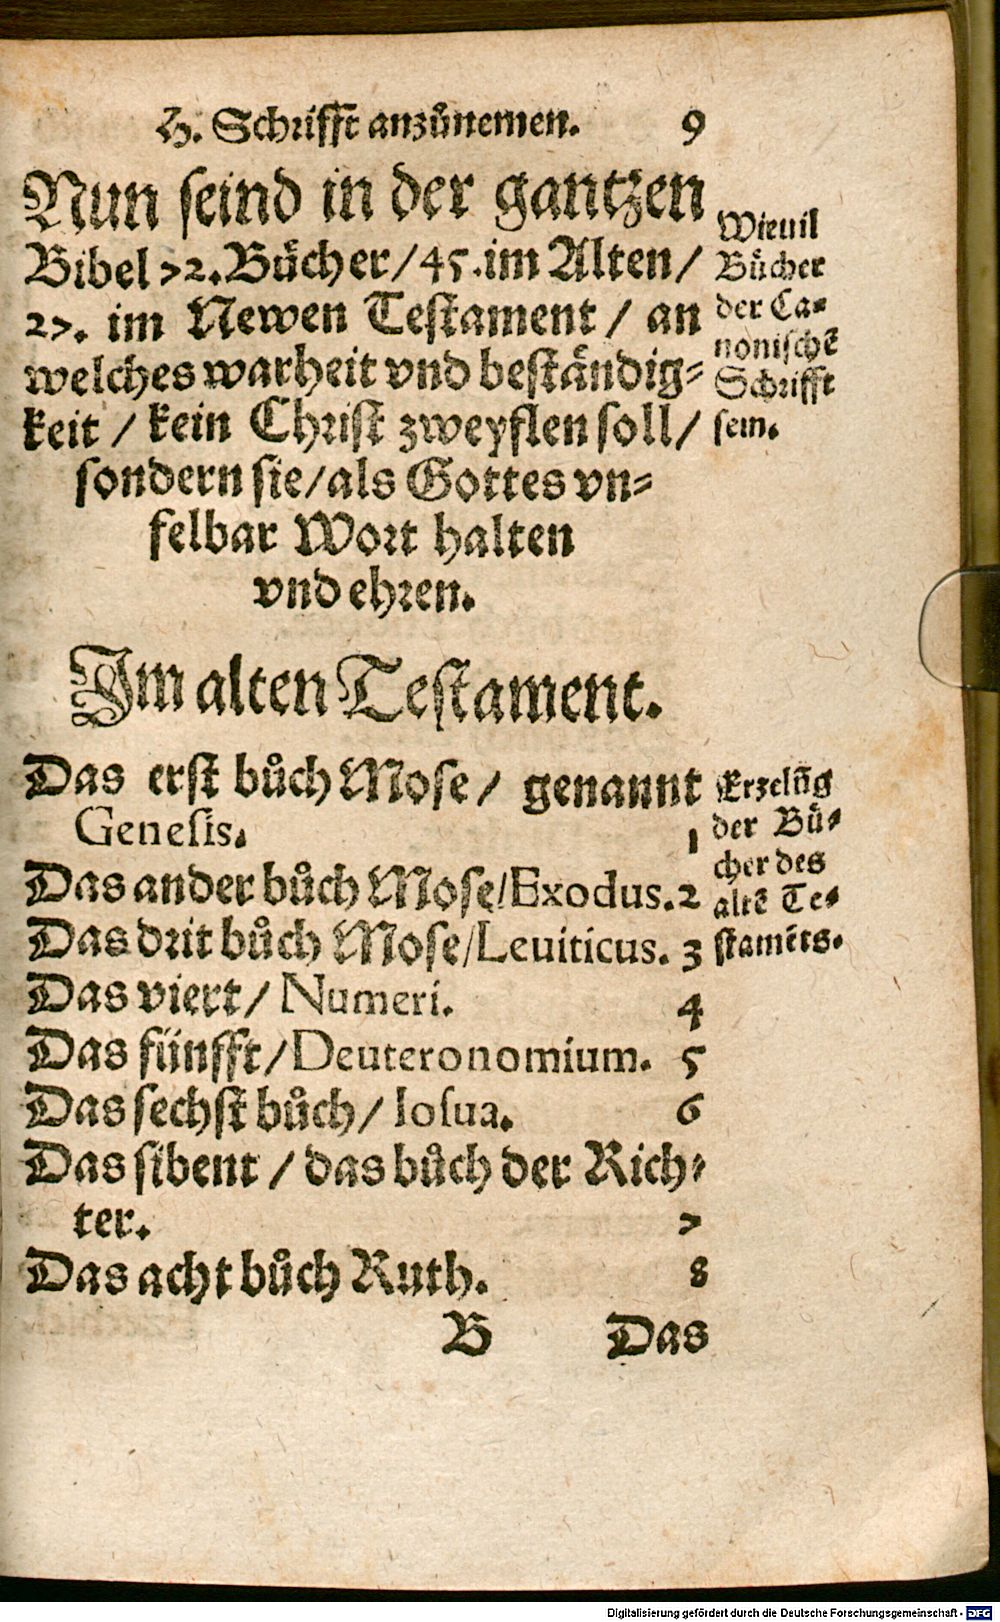 H. Schrifft anzůnemen. 9
Nun seind in der gantzen
Bibel 72. Bücher / 45. im Alten /
27. im Newen Testament / an
welches warheit vnd beständig⸗
keit / kein Christ zweyflen soll /
sondern sie / als Gottes vn⸗
felbar Wort halten
vnd ehren.
Wieuil
Bücher
der Ca⸗
nonischē
Schrifft
sein.
Im alten Testament.
Das erst bůch Mose / genannt
Genesis. 1
Das ander bůch Mose / Exodus. 2
Das drit bůch Mose / Leuiticus. 3
Das viert / Numeri. 4
Das fünfft / Deuteronomium. 5
Das sechst bůch / Iosua. 6
Das sibent / das bůch der Rich⸗
ter. 7
Das acht bůch Ruth. 8
Erzelūg
der Bü⸗
cher des
altē Te⸗
stamēts.
B Das
Digitalisierung gefördert durch die Deutsche Forschungsgemeinschaft - DFG